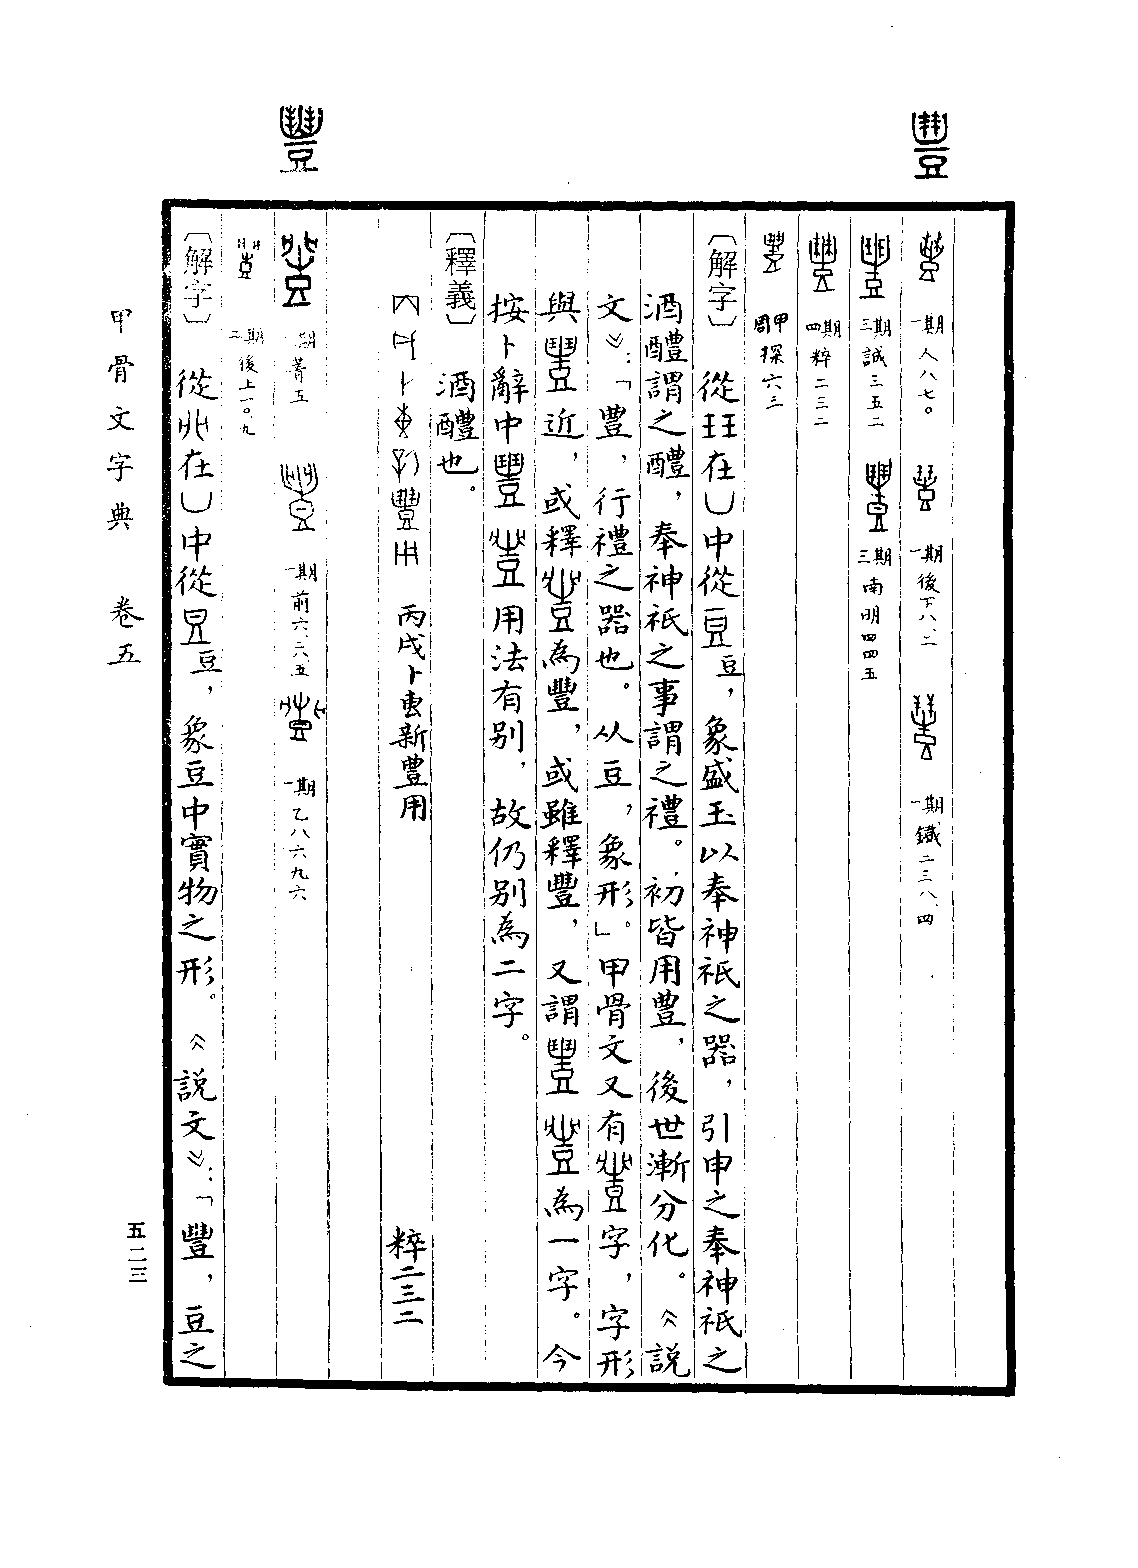 豊
一期 人八七〇 一期 後下八.二 一期 鐵二三八.四
三期 誠三五二 三期 南明四四五
四期 粹二三二
周甲 探六三
〔解字〕 從玨在凵中從豆,象盛玉以奉神祇之器,引申之奉神祇之
酒醴謂之醴,奉神祇之事謂之禮。初皆用豊,後世漸分化。《說
文》:「豊,行禮之器也。从豆,象形。」甲骨文又有字,字形
與近,或釋為豐,或雖釋豐,又謂為一字。今
按卜辭中用法有别,故仍别為二字。
〔釋義〕 酒醴也。
丙戌卜叀新豊用 粹二三二
豐
一期 菁五 一期 前六.六一.五 一期 乙八六九六
二期 後上一〇.九
〔解字〕 從在凵中從豆,象豆中實物之形。《說文》:「豐,豆之
甲骨文字典 卷五
五二三